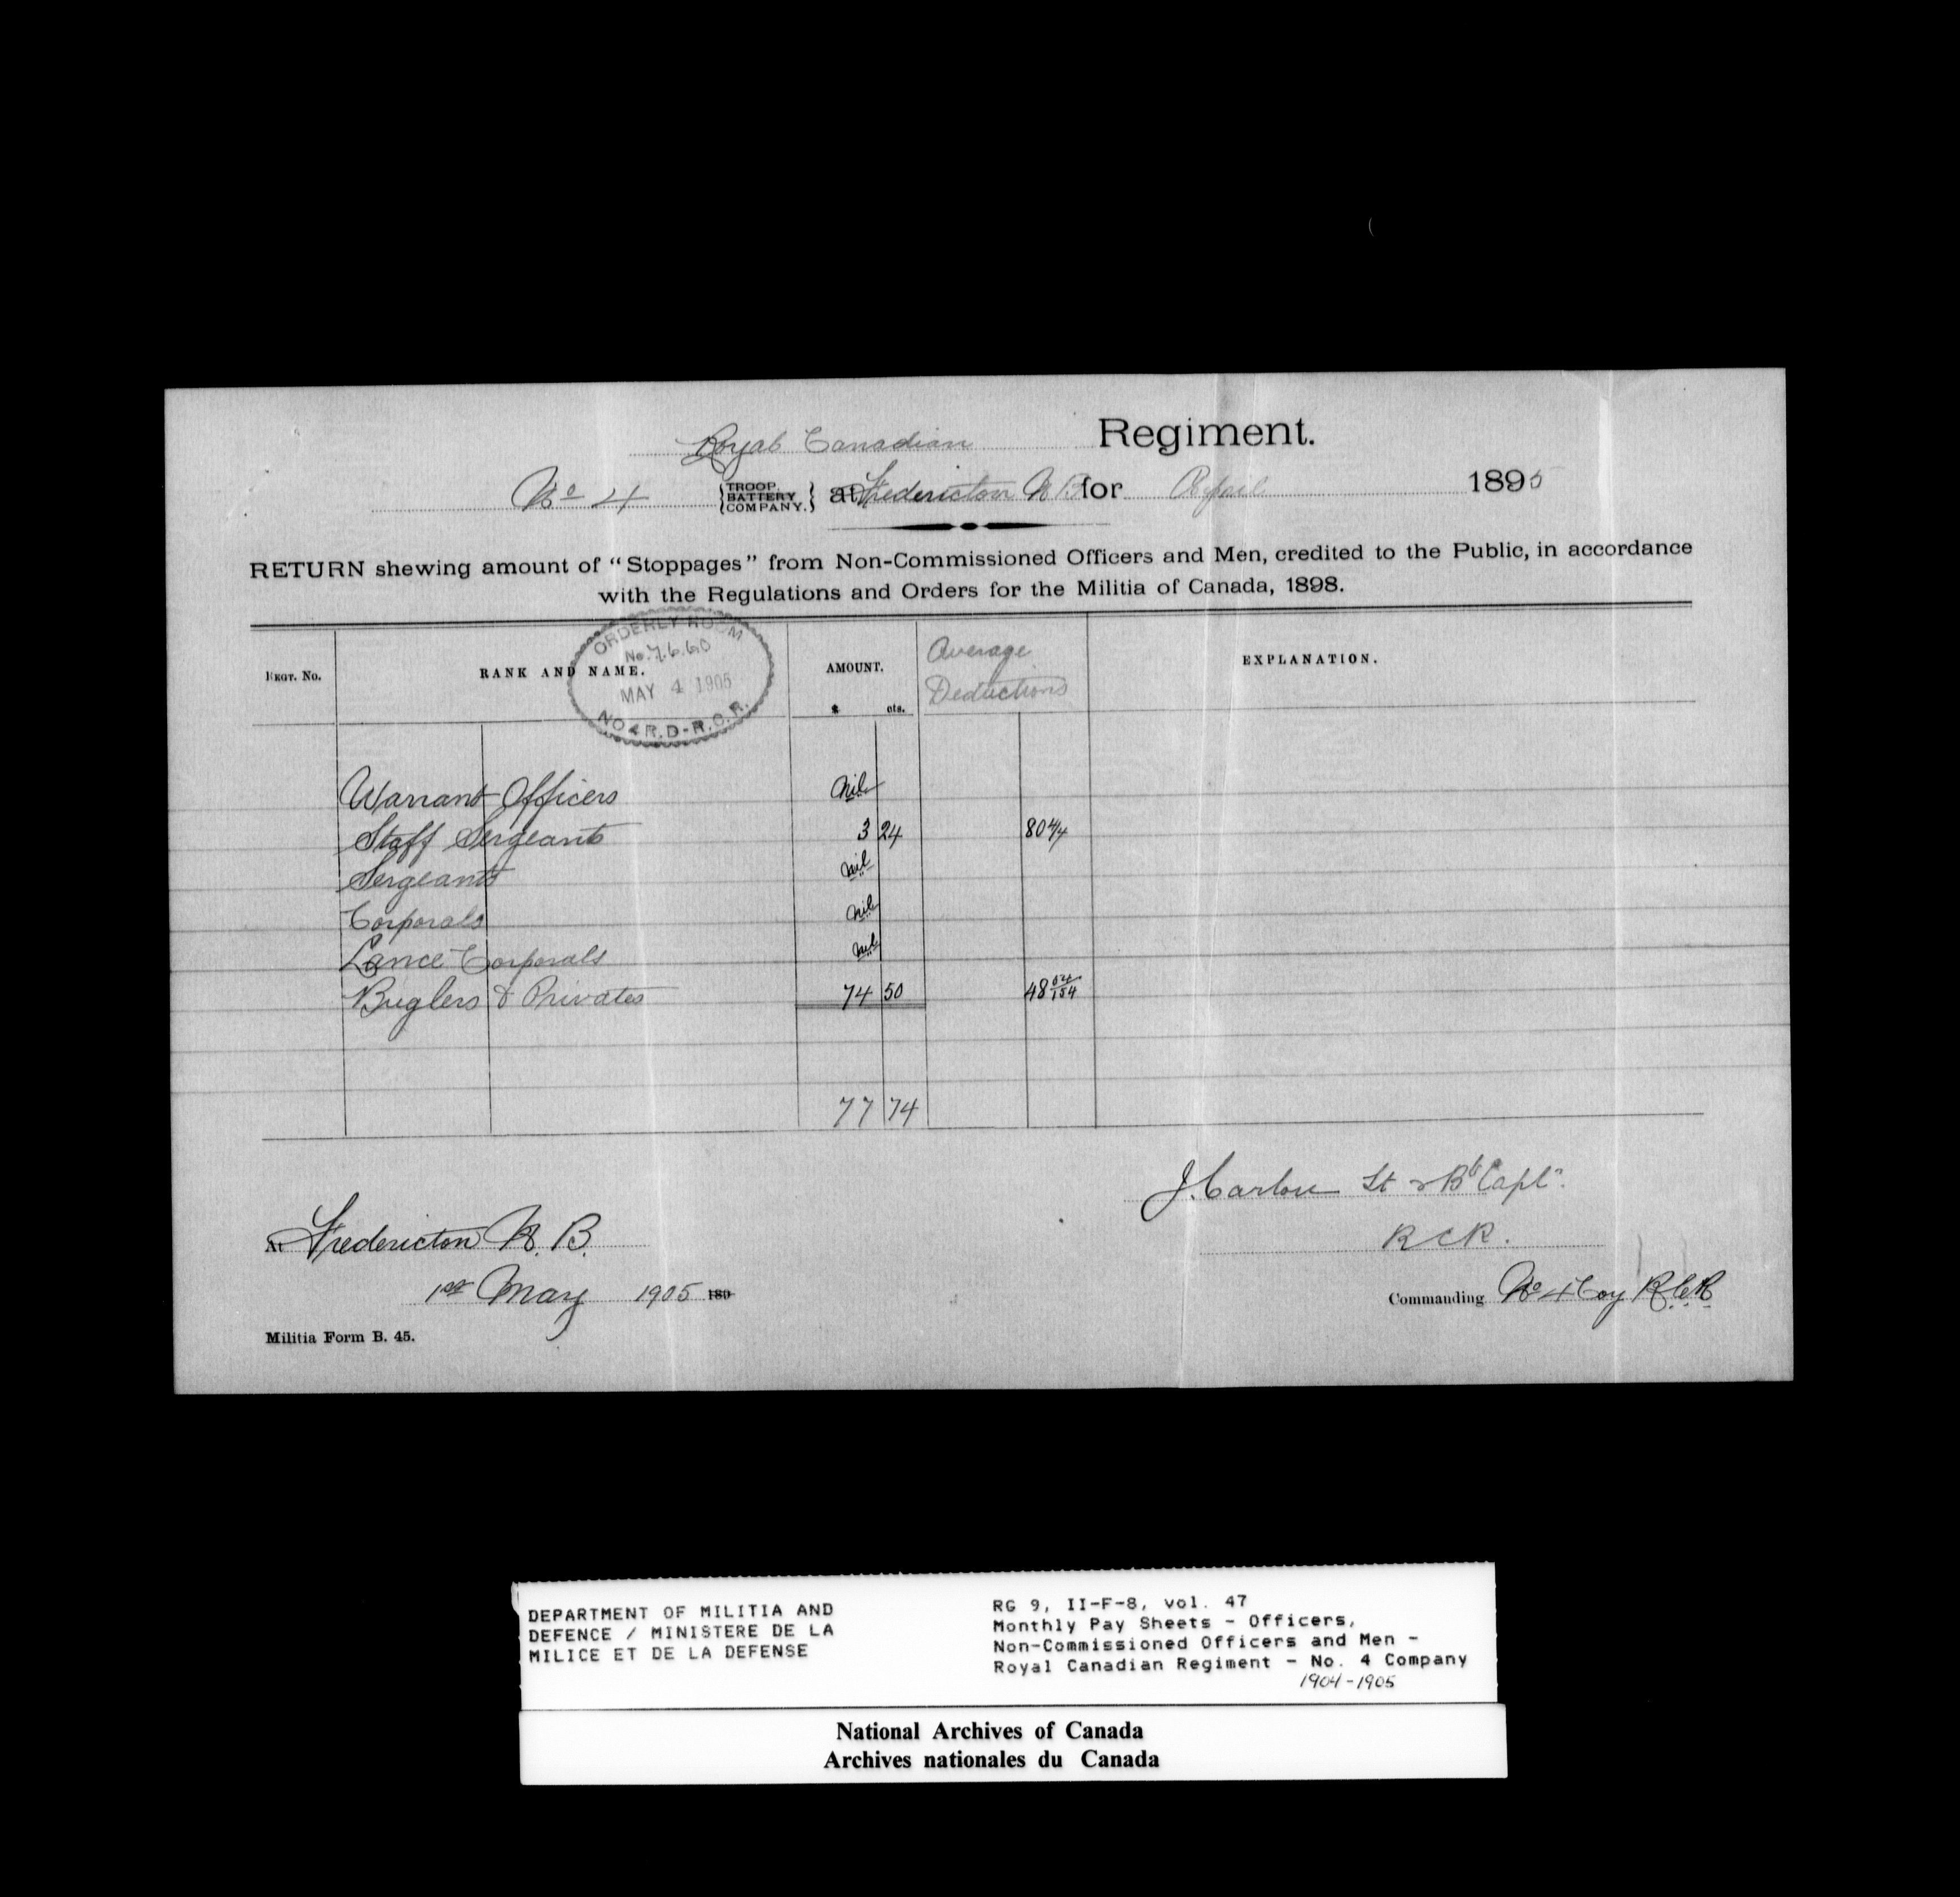 Royal Canadian Regiment.
No 4 {TROOP. BATTERY COMPANY.} at Fredericton N B for April 1895
RETURN shewing amount of "Stoppages" from Non-Commissioned Officers and Men, credited to the Public, in accordance
with the Regulations and Orders for the Militia of Canada, 1898.
ORDERLY ROOM
No. 7.6.60
MAY 4 1905
NO 4 R.D-R.C.R.
REGT. No. RANK AND NAME. AMOUNT. $ cts. Average Deductions EXPLANATION.
Warrant Officers Nil
Staff Sergeants 3 24 80 4/4
Sergeants nil
Corporals nil
Lance Corporals nil
Buglers & Privates 74 50 48 /154
77 74
J. Lt & Bt Capt.
RCR.
At Fredericton N. B.
1st May 1905 189
Commanding No 4 Coy R.C.R
Militia Form B. 45.
DEPARTMENT OF MILITIA AND
DEFENCE / MINISTERE DE LA
MILICE ET DE LA DEFENSE
RG 9, II-F-8, vol. 47
Monthly Pay Sheets - Officers,
Non-Commissioned Officers and Men -
Royal Canadian Regiment - No. 4 Company
1904-1905
National Archives of Canada
Archives nationales du Canada